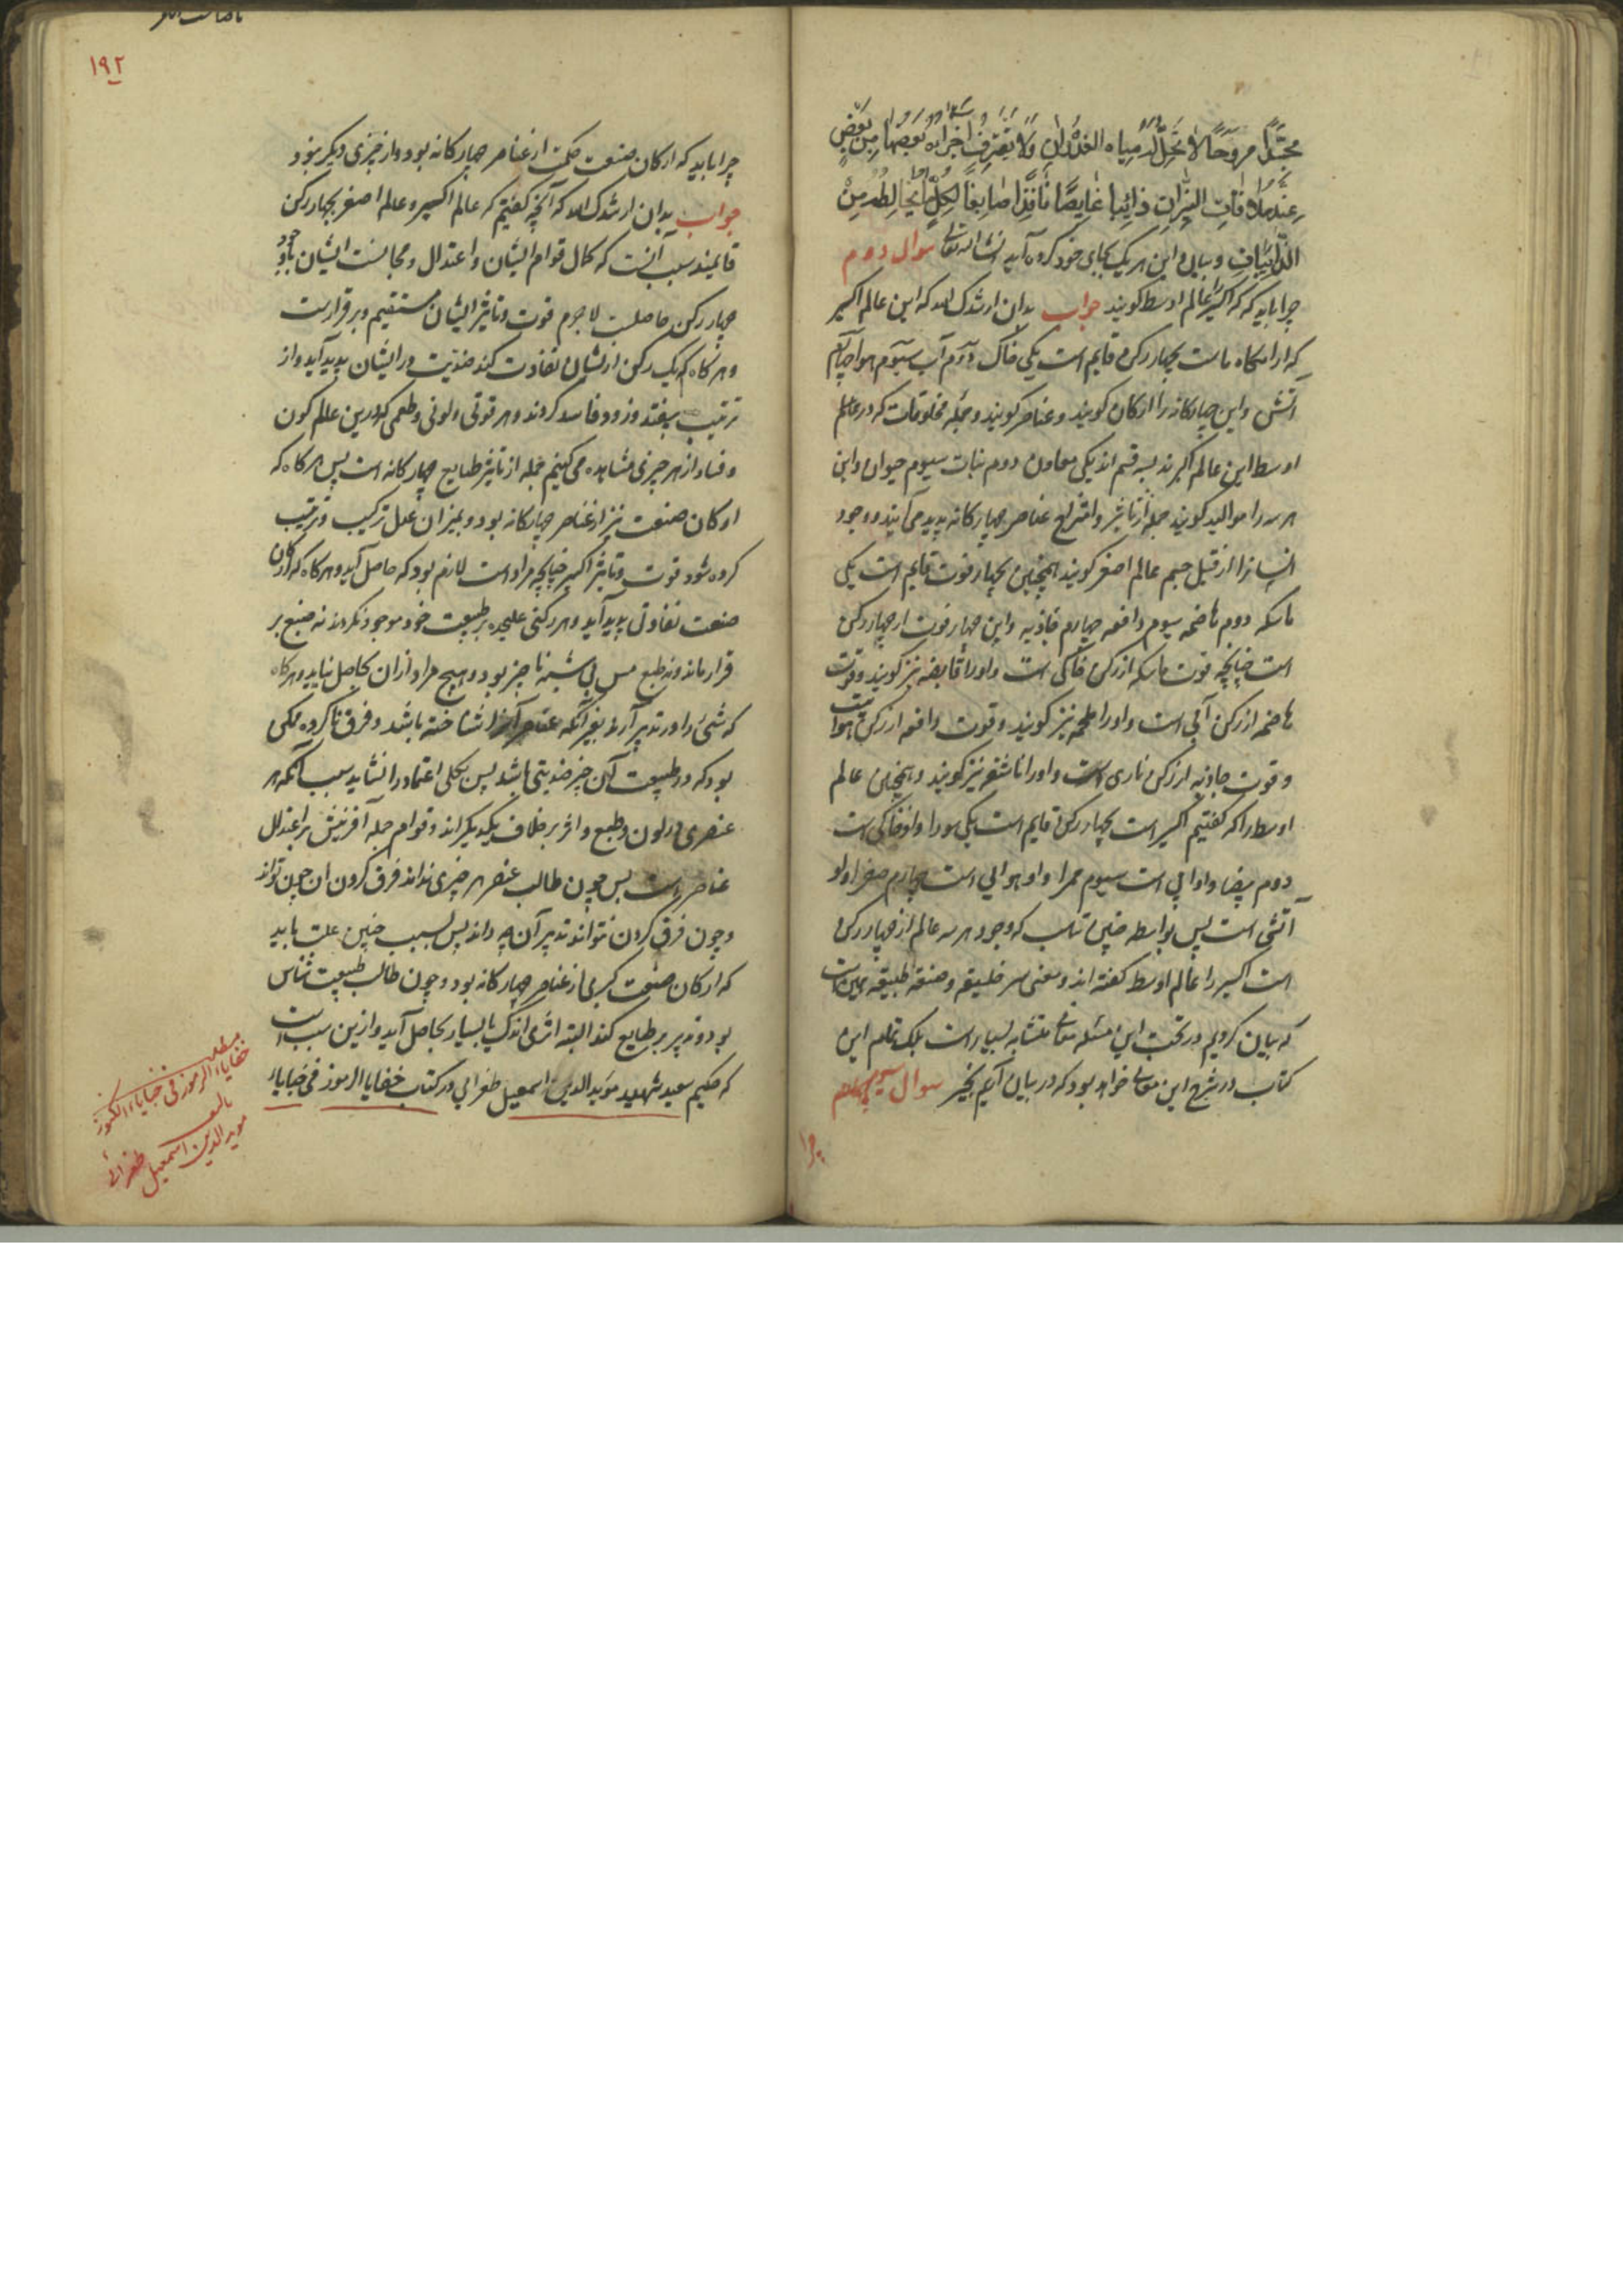 مجسدًا مروحًا لا تحلله مياه الغدران ولا یفترق اجزاؤه بعضها من بعض
عند ملاقات النیران ذائبا غایصًا نافذا صابغًا لکل ما یخالطه من
الذائبات و بیان این هر یک بجای خود کرده آید انشا الله تعالی سوال دوم
چرا باید که اکسیر عالم اوسط کویند جواب بدان ارشدک الله که این عالم اکبر
که ارامکاه ماست بچهار رکن قایم است یکی خاک دوم آب سیوم هوا چهارم
آتش و این چهارکانه را ارکان کویند و عناصر کویند و جمله مخلوقات که در عالم
اوسط این عالم اکبرند بسه قسم اند یکی معادن دوم نبات سیوم حیوان و این
هر سه را موالید کویند جمله از تاثیر و امتزاج عناصر چهارکانه پدید می آیند و وجود
انسانرا از قبل جسم عالم اصغر کویند همچنین بچهار قوت قایم است یکی
ماسکه دوم هاضمه سیوم دافعه چهارم جاذبه و این چهار قوت از چهار رکن
است چنانچه قوت ماسکه از رکن خاکی است و اورا قابضه نیز کویند و قوت
هاضمه از رکن آبی است و اورا نیز کویند و قوت دافعه از رکن هوائیت
و قوت جاذبه از رکن ناری است و اورا ناشفه نیز کویند و همچنین عالم
اوسط را که کفتیم اکسیر است بچهار رکن قایم است یکی سودا و او خاکی است
دوم بیضا و او آبی است سیوم حمرا و او هوایی است چهارم صفرا و او
آتشی است پس بواسطه چنین تناسب که وجود هر سه عالم از چهار رکن
است اکسیر را عالم اوسط کفته اند و معنی سر خلیقه و صنعة طبیعه همین است
که بیان کردیم و در تحت این مسئله معانی متشابه بسیار است بلک تمام این
کتاب در شرح این معانی خواهد بود که در بیان آئیم بخیر سوال سیوم
چرا
۱۹۲
چرا باید که ارکان صنعت حکمت از عناصر چهارکانه بود و از چیزی دیکر نبود
جواب بدان ارشدک الله که آنچه کفتیم که عالم اکسیر و عالم اصغر بچهار رکن
قایمند سبب آنست که کمال قوام ایشان و اعتدال و مجانست ایشان با وجود
چهار رکن حاصلست لاجرم قوت و تاثیر ایشان مستقیم و برقرارست
و هرکاه که یک رکن از ایشان تفاوت کند ضدیت در ایشان پدید آید و از
ترتیب بیفتد و زود فاسد کردند و هر قوتی و لونی و طعمی که درین عالم کون
و فساد از هر چیزی مشاهده می کنیم جمله از تاثیر طبایع چهارکانه است پس هرکاه که
ارکان صنعت نیز از عناصر چهارکانه بود و بمیزان عدل ترکیب و ترتیب
کرده شود قوت و تاثیر اکسیر چنانچه مراد است لازم بود که حاصل آید و هرکاه که در ارکان
صنعت تفاوتی پدید آید و هر رکنی علیحده بر طبیعت خود موجود نکردد نه صبغ بر
قرار ماند و نه طبع پس بی شبهه ناچیز بود و هیچ مراد از ان بحاصل نیاید و هرکاه
که شئ را در تدبیر آرد بغیر آنکه عناصر آنرا شناخته باشد و فرق ناکرده ممکن
بود که در طبیعت آن چیز ضدیتی باشد پس بکلی اعتماد را نشاید سبب آنکه هر
عنصری در لون و طبع و اثر بر خلاف یکدیکر اند و قوام جمله آفرینش بر اعتدال
عناصر است پس چون طالب عنصر هر چیزی نداند فرق کردن ان چون تواند
و چون فرق کردن نتواند تدبیر آن چه داند پس بسبب چنین علت باید
که ارکان صنعت کبری از عناصر چهارکانه بود و چون طالب طبیعت شناس
بود و تدبیر بر طبایع کند البته اثری اندک یا بسیار بحاصل آید و ازین سبب است
که حکیم سعید شهید مؤید الدین اسمعیل طغرایی در کتاب خفایا الرموز فی خبایاء
مطلب
خفایاء الرموز فی خبایاء الکنوز
تالیف
موید الدین اسمعیل طغرائی